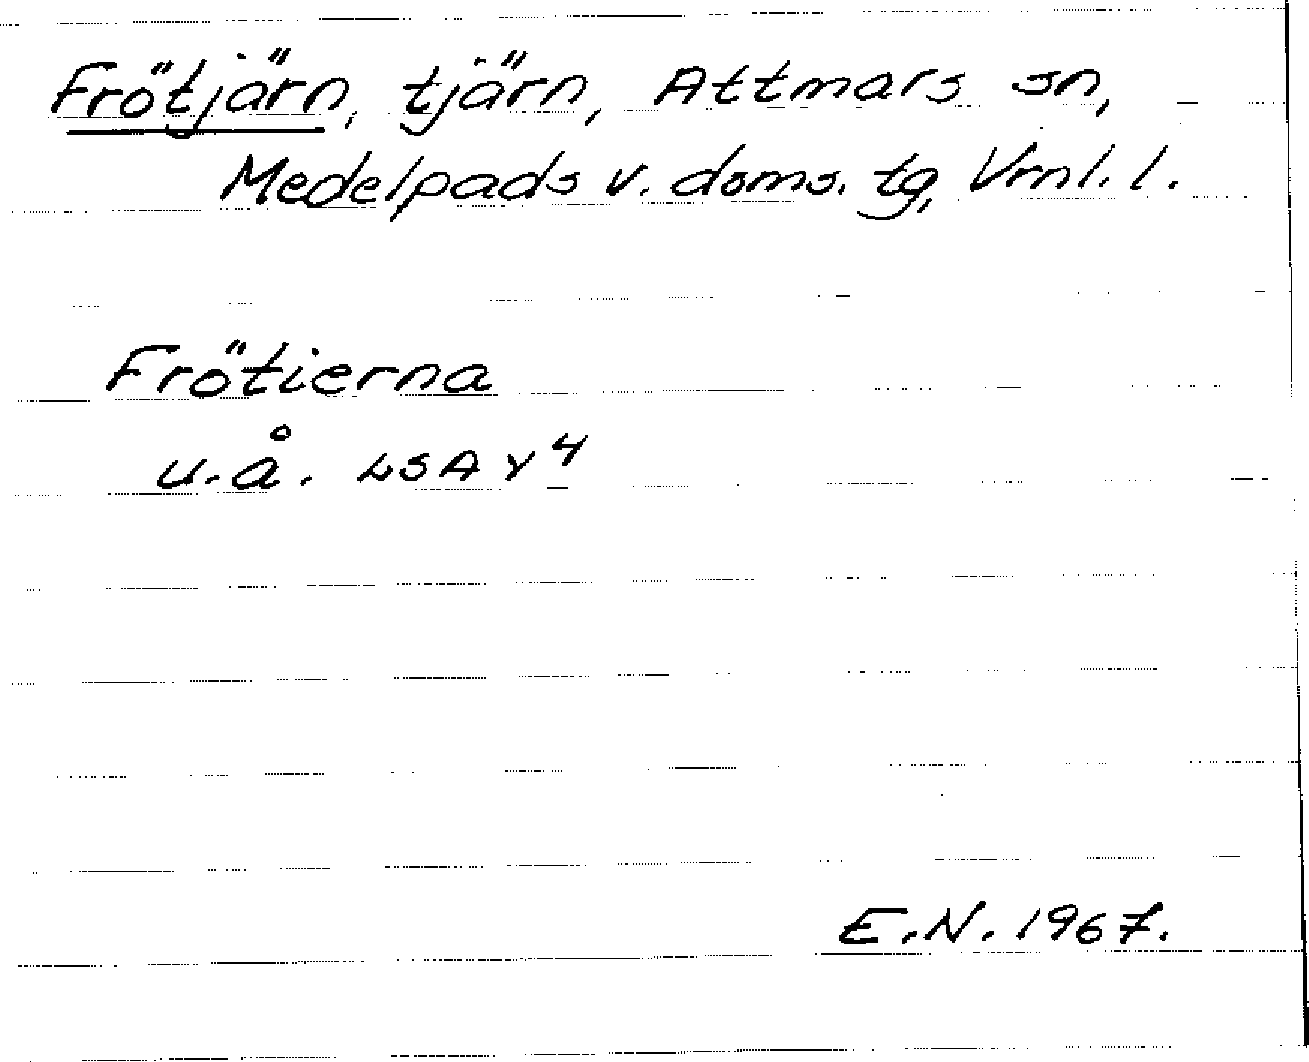 Frötjärn, tjärn, Attmars sn,
Medelpads v. doms. tg, Vrnl. l.
Frötierna
u.å. LSA Y 4
E.N. 1967.